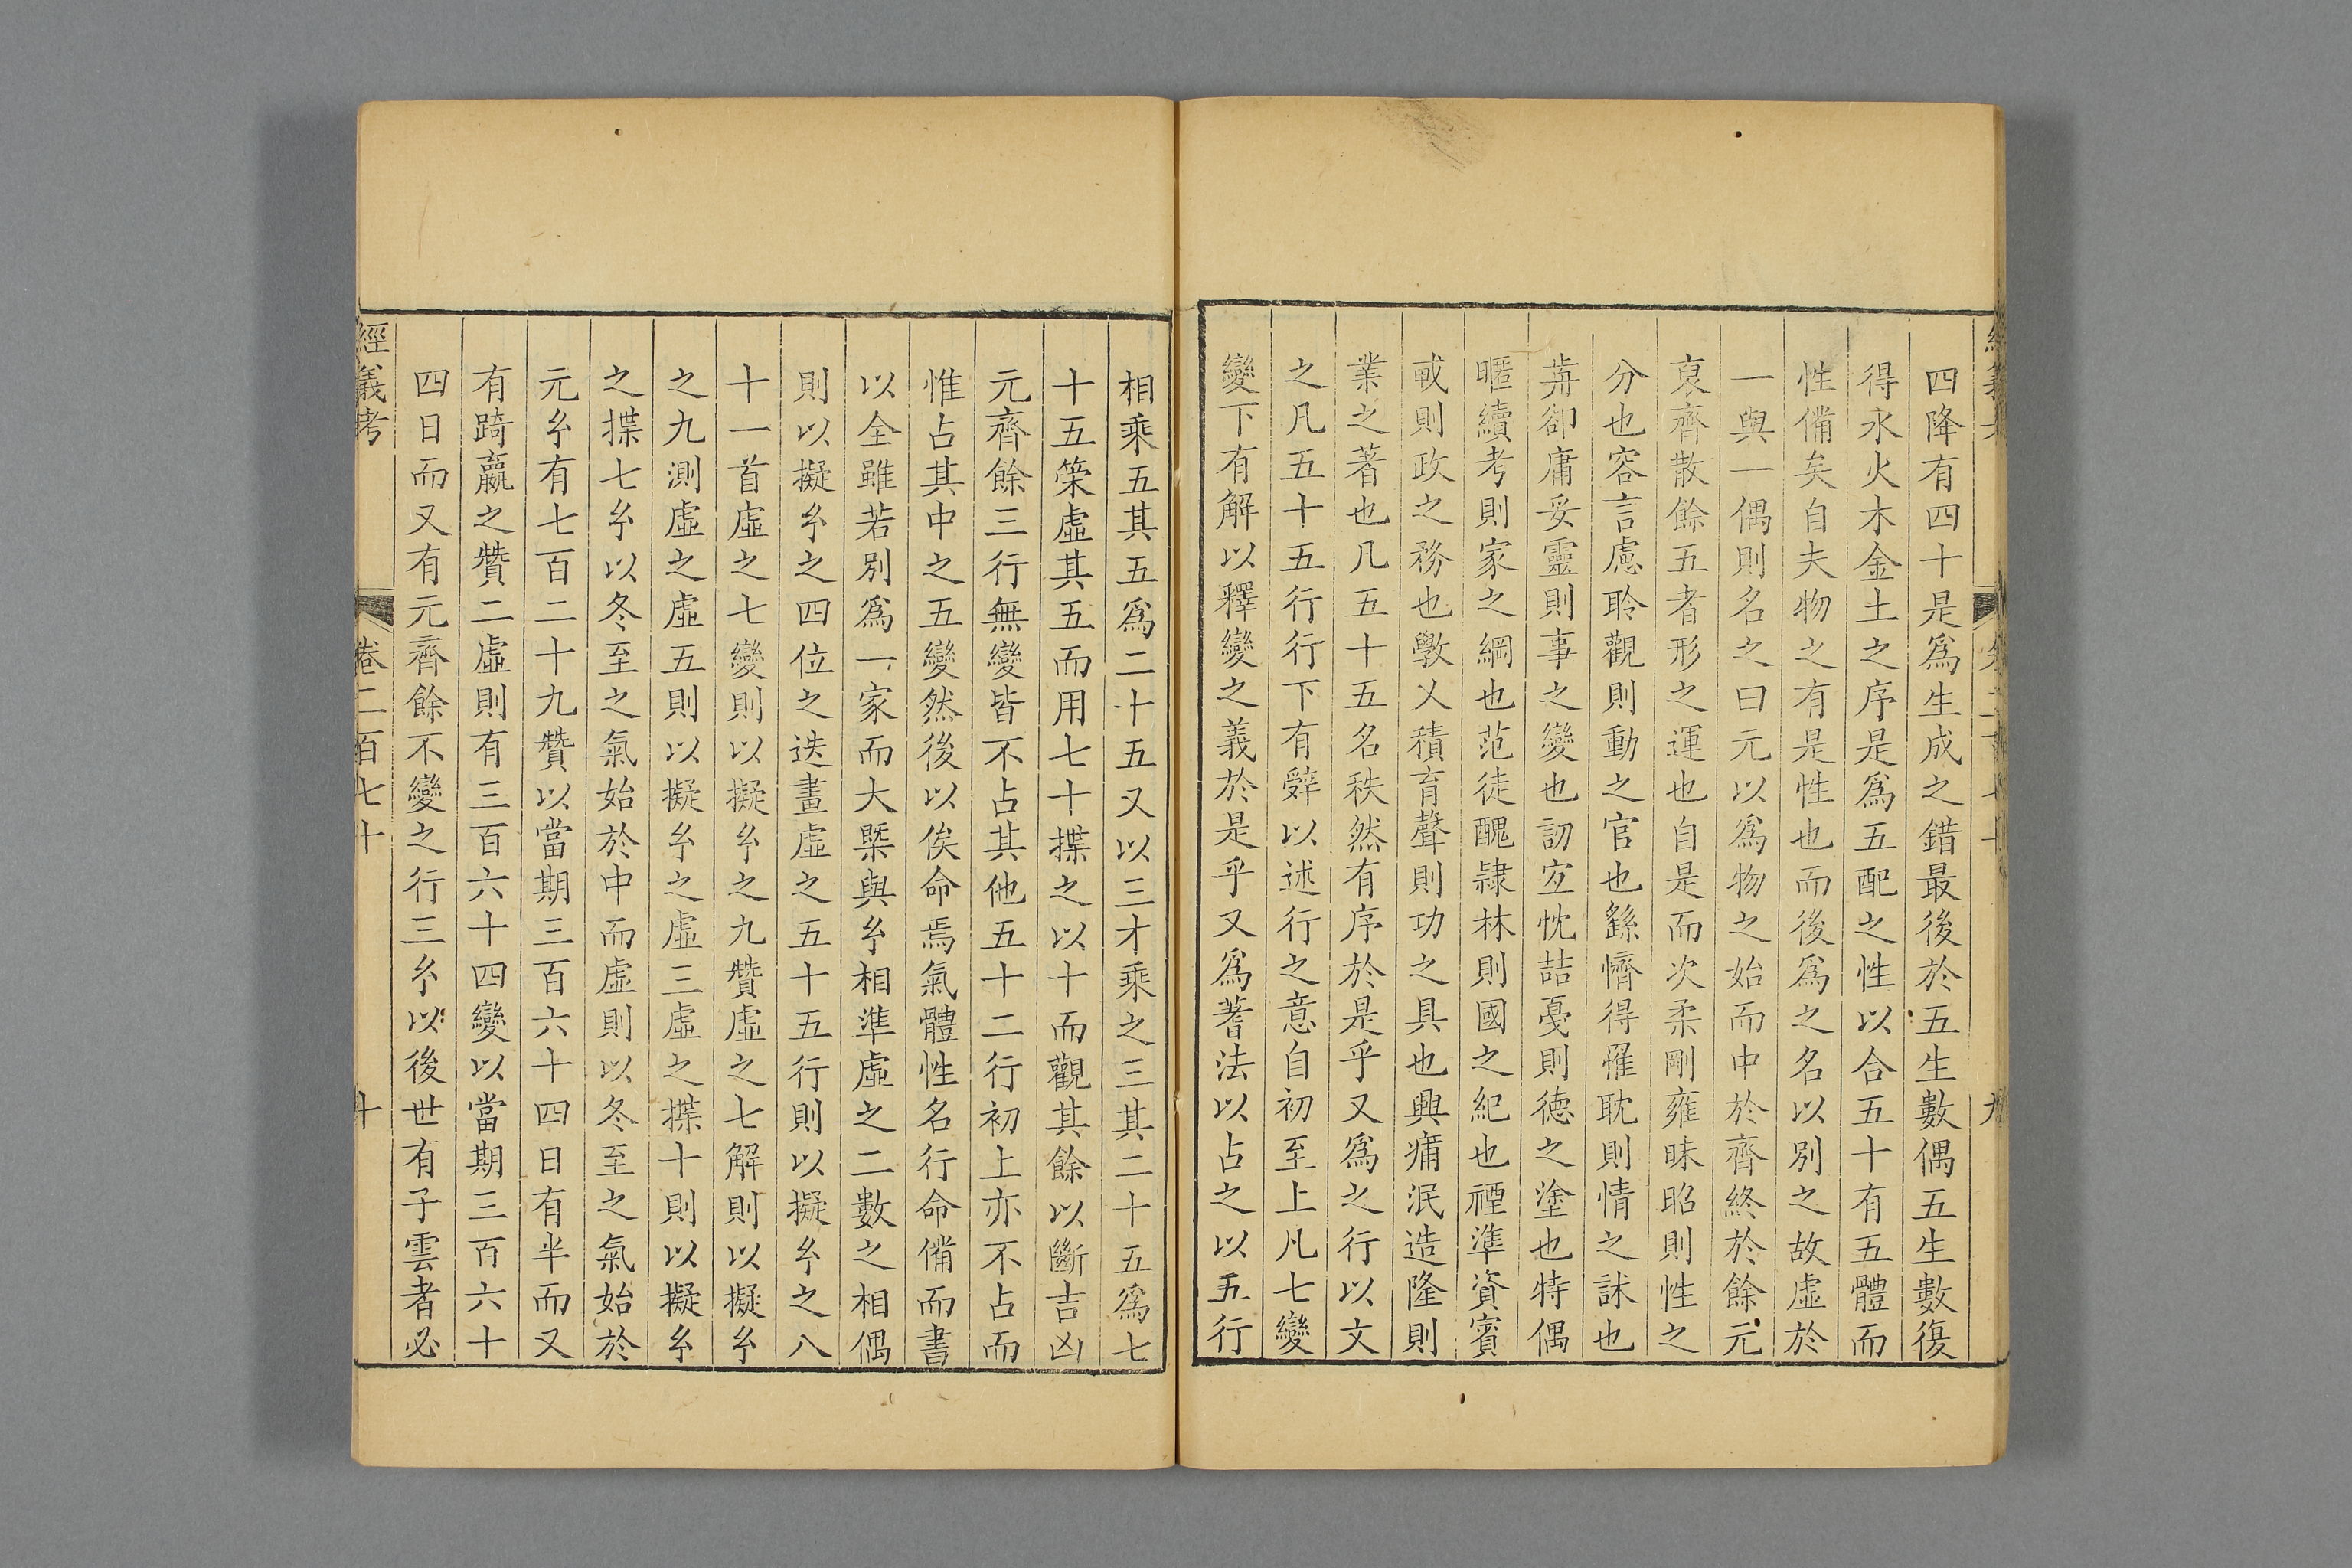 四降有四十是爲生成之錯最後於五生數偶五生數復
得水火木金土之序是爲五配之性以合五十有五體而
性備矣自夫物之有是性也而後爲之名以別之故虛於
一與一偶則名之曰元以爲物之始而中於齊終於餘元
裒齊散餘五者形之運也自是而次柔剛雍昧昭則性之
分也容言慮聆觀則動之官也繇懠得罹耽則情之訹也
蒆卻庸妥靈則事之變也訒宐忱喆戞則德之塗也特偶
暱續考則家之綱也范徒醜隷林則國之紀也禋準資賓
㦯則政之務也斆乂積育聲則功之具也興痡泯造隆則
業之著也凡五十五名秩然有序於是乎又爲之行以文
之凡五十五行行下有辭以述行之意自初至上凡七變
變下有解以釋變之義於是乎又爲蓍法以占之以五行
相乘五其五爲二十五又以三才乘之三其二十五爲七
十五筞虛其五而用七十揲之以十而觀其餘以斷吉凶
元齊餘三行無變皆不占其他五十二行初上亦不占而
惟占其中之五變然後以俟命焉氣體性名行命備而書
以全雖若別爲一家而大槩與𢆯相準虛之二數之相偶
則以擬𢆯之四位之迭畫虛之五十五行則以擬𢆯之八
十一首虛之七變則以擬𢆯之九贊虛之七解則以擬𢆯
之九測虛之虛五則以擬𢆯之虛三虛之揲十則以擬𢆯
之揲七𢆯以冬至之氣始於中而虛則以冬至之氣始於
元𢆯有七百二十九贊以當期三百六十四日有半而又
有踦贏之贊二虛則有三百六十四變以當期三百六十
四日而又有元齊餘不變之行三𢆯以後世有子雲者必
經義考 卷二百七十 十